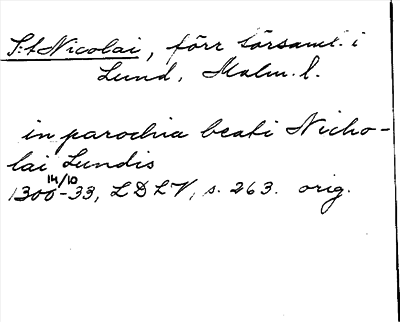 S:t Nicolai, förr församl. i
Lund, Malm. l.
in parochia beati Nicho-
lai Lundis
1300 14/10 -33, LDLV, s. 263. orig.